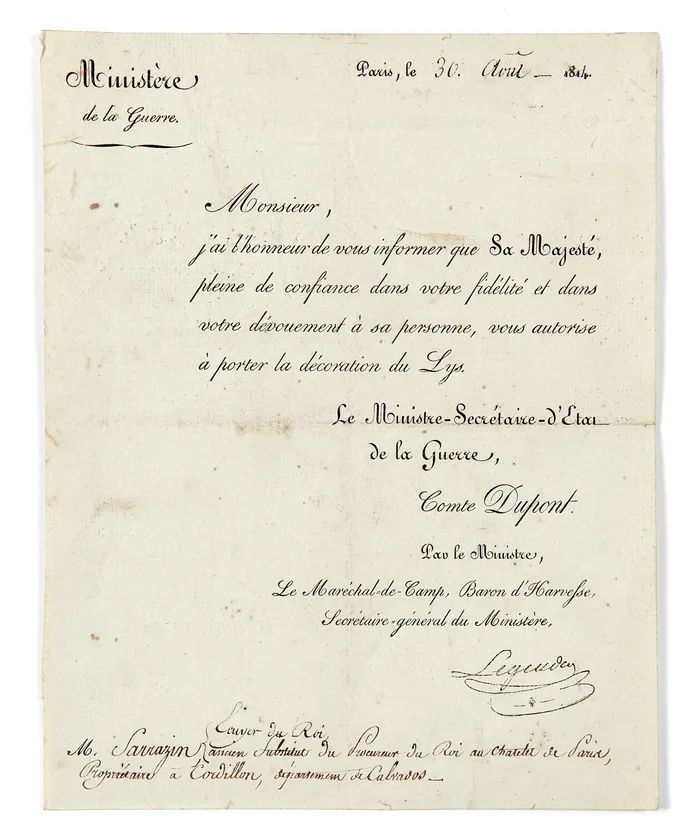 Ministère
de la Guerre.
Paris, le 30. Août 1814.
Monsieur,
j'ai l'honneur de vous informer que Sa Majesté,
pleine de confiance dans votre fidélité et dans
votre dévouement à sa personne, vous autorise
à porter la décoration du Lys.
Le Ministre-Secrétaire-d'Etat
de la Guerre,
Comte Dupont.
Par le Ministre,
Le Maréchal-de-Camp, Baron d'Harvesse,
Secrétaire-général du Ministère,
du Roi
M. Sarrazin, ancien Substitut du Procureur du Roi au Chatelet de Paris,
Propriétaire à Tordillon, département de Calvados